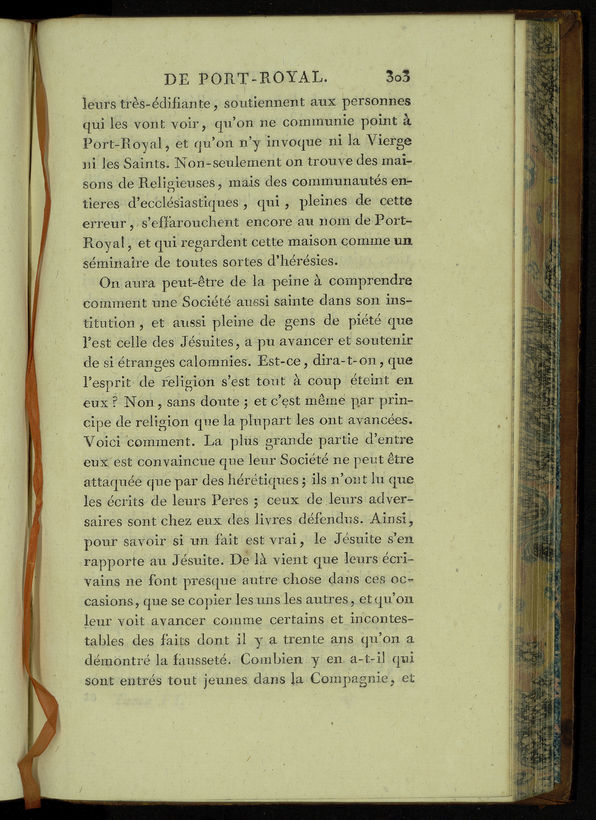 DE PORT-ROYAL. 303
leurs très-édifiante, soutiennent aux personnes
qui les vont voir, qu'on ne communie point à
Port-Royal, et qu'on n'y invoque ni la Vierge
ni les Saints. Non-seulement on trouve des mai-
sons de Religieuses, mais des communautés en-
tieres d'ecclésiastiques, qui, pleines de cette
erreur, s'effarouchent encore au nom de Port-
Royal, et qui regardent cette maison comme un
séminaire de toutes sortes d'hérésies.
On aura peut-être de la peine à comprendre
comment une Société aussi sainte dans son ins-
titution, et aussi pleine de gens de piété que
l'est celle des Jésuites, a pu avancer et soutenir
de si étranges calomnies. Est-ce, dira-t-on, que
l'esprit de religion s'est tout à coup éteint en
eux ? Non, sans doute ; et c'est même par prin-
cipe de religion que la plupart les ont avancées.
Voici comment. La plus grande partie d'entre
eux est convaincue que leur Société ne peut être
attaquée que par des hérétiques ; ils n'ont lu que
les écrits de leurs Peres ; ceux de leurs adver-
saires sont chez eux des livres défendus. Ainsi,
pour savoir si un fait est vrai, le Jésuite s'en
rapporte au Jésuite. De là vient que leurs écri-
vains ne font presque autre chose dans ces oc-
casions, que se copier les uns les autres, et qu'on
leur voit avancer comme certains et incontes-
tables des faits dont il y a trente ans qu'on a
démontré la fausseté. Combien y en a-t-il qui
sont entrés tout jeunes dans la Compagnie, et